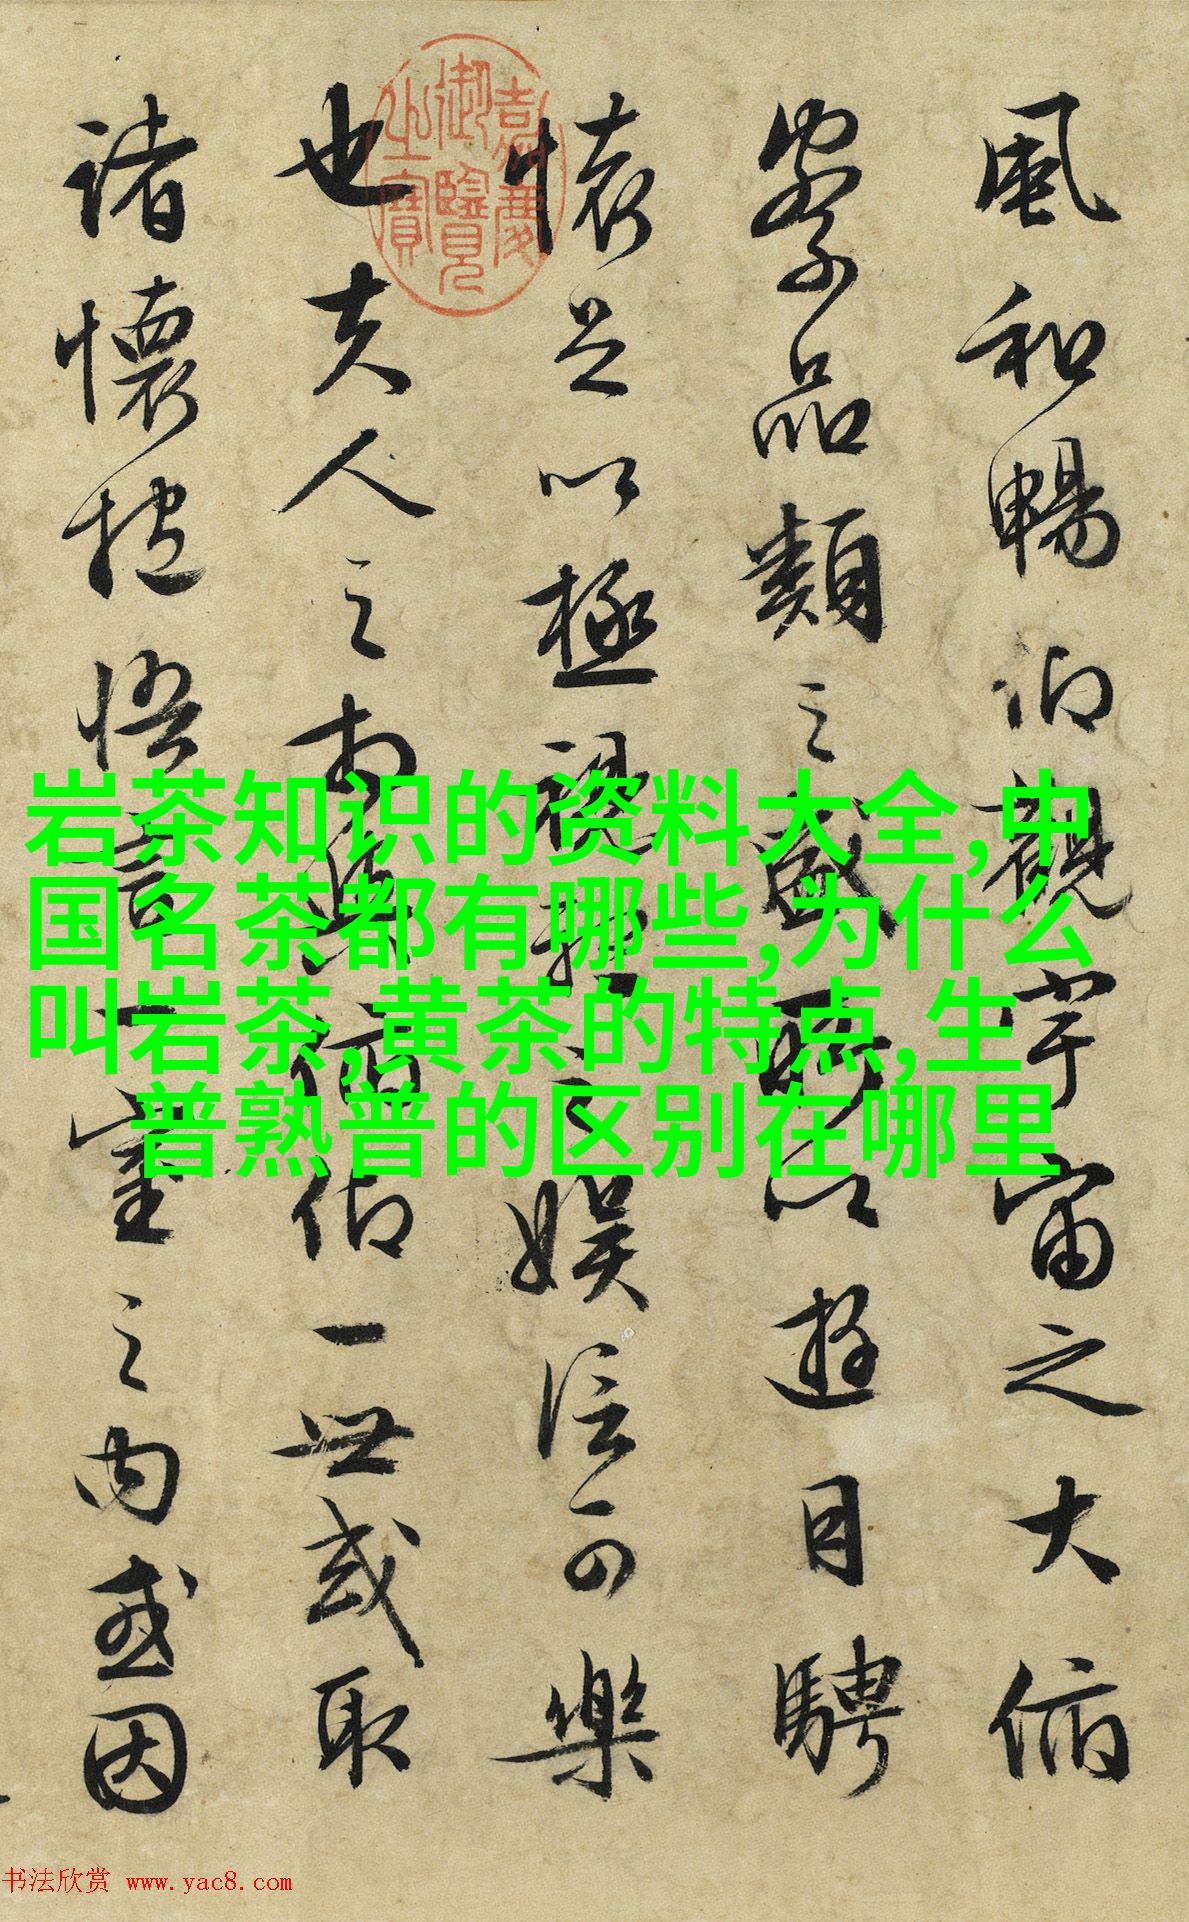 風和暢仰觀宇宙之大俯
察品類之盛所以遊目騁
懷足以極視聽之娛信可樂
也夫人之相與俯仰一世或取
諸懷抱悟言一室之内或因
嘉慶
御覽
之寶
岩茶知识的资料大全,中
国名茶都有哪些,为什么
叫岩茶,黄茶的特点,生
普熟普的区别在哪里
书法欣赏 www.yac8.com